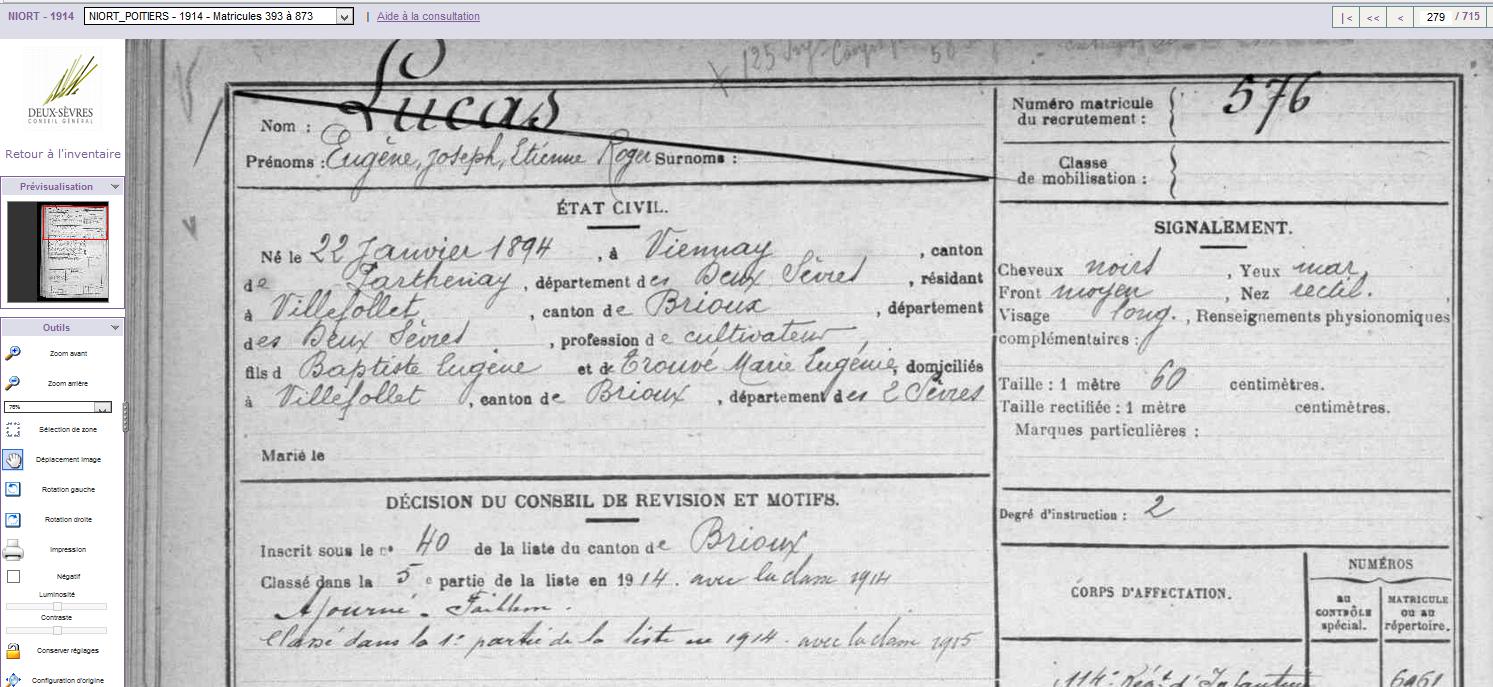 NIORT - 1914 NIORT_POITIERS - 1914 - Matricules 393 à 873 | Aide à la consultation |< << < 279 / 715
DEUX-SÈVRES
CONSEIL GÉNÉRAL
Retour à l'inventaire
Prévisualisation
Outils
Zoom avant
Zoom arrière
76%
Sélection de zone
Déplacement image
Rotation gauche
Rotation droite
Impression
Négatif
Luminosité
Contraste
Conserver réglages
Configuration d'origine
125 50
Nom : Lucas
Prénoms : Eugène, Joseph, Etienne Roger Surnoms :
Numéro matricule
du recrutement : 576
Classe
de mobilisation :
ÉTAT CIVIL.
Né le 22 Janvier 1894, à Viennay, canton
de Parthenay, département des Deux Sèvres, résidant
à Villefollet, canton de Brioux, département
des Deux Sèvres, profession de cultivateur
fils d Baptiste Eugène et de Trouvé Marie Eugénie, domiciliés
à Villefollet, canton de Brioux, département des 2 Sèvres
Marié le
SIGNALEMENT.
Cheveux noirs, Yeux mar,
Front moyen, Nez rectil.,
Visage long., Renseignements physionomiques
complémentaires :
Taille : 1 mètre 60 centimètres.
Taille rectifiée : 1 mètre centimètres.
Marques particulières :
Degré d'instruction : 2
DÉCISION DU CONSEIL DE REVISION ET MOTIFS.
Inscrit sous le n° 40 de la liste du canton de Brioux
Classé dans la 5e partie de la liste en 1914. avec la classe 1914
Ajourné -
Classé dans la 1e partie de la liste en 1914. avec la classe 1915
CORPS D'AFFECTATION.
NUMÉROS
au
CONTRÔLE
spécial.
MATRICULE
ou au
répertoire.
114e Régt d'Infanterie